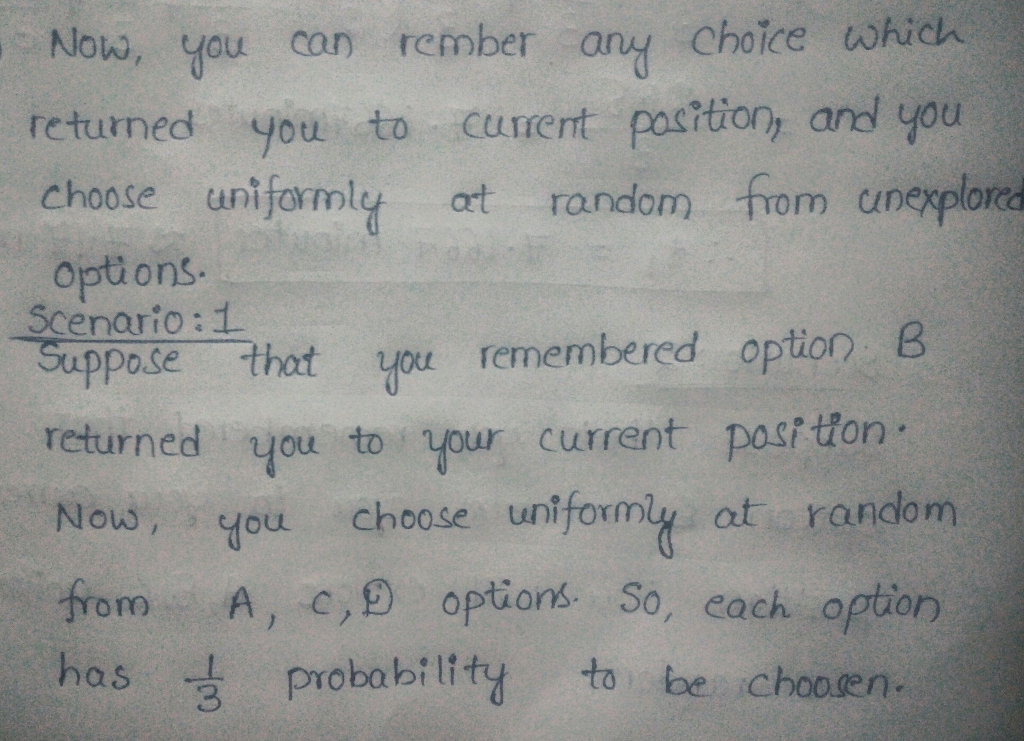 Now, you can rember any choice which
returned you to current position, and you
choose uniformly at random from unexplored
options.
Scenario: 1
Suppose that you remembered option B
returned you to your current position.
Now, you choose uniformly at random
from A, C, D options. So, each option
has 1/3 probability to be choosen.